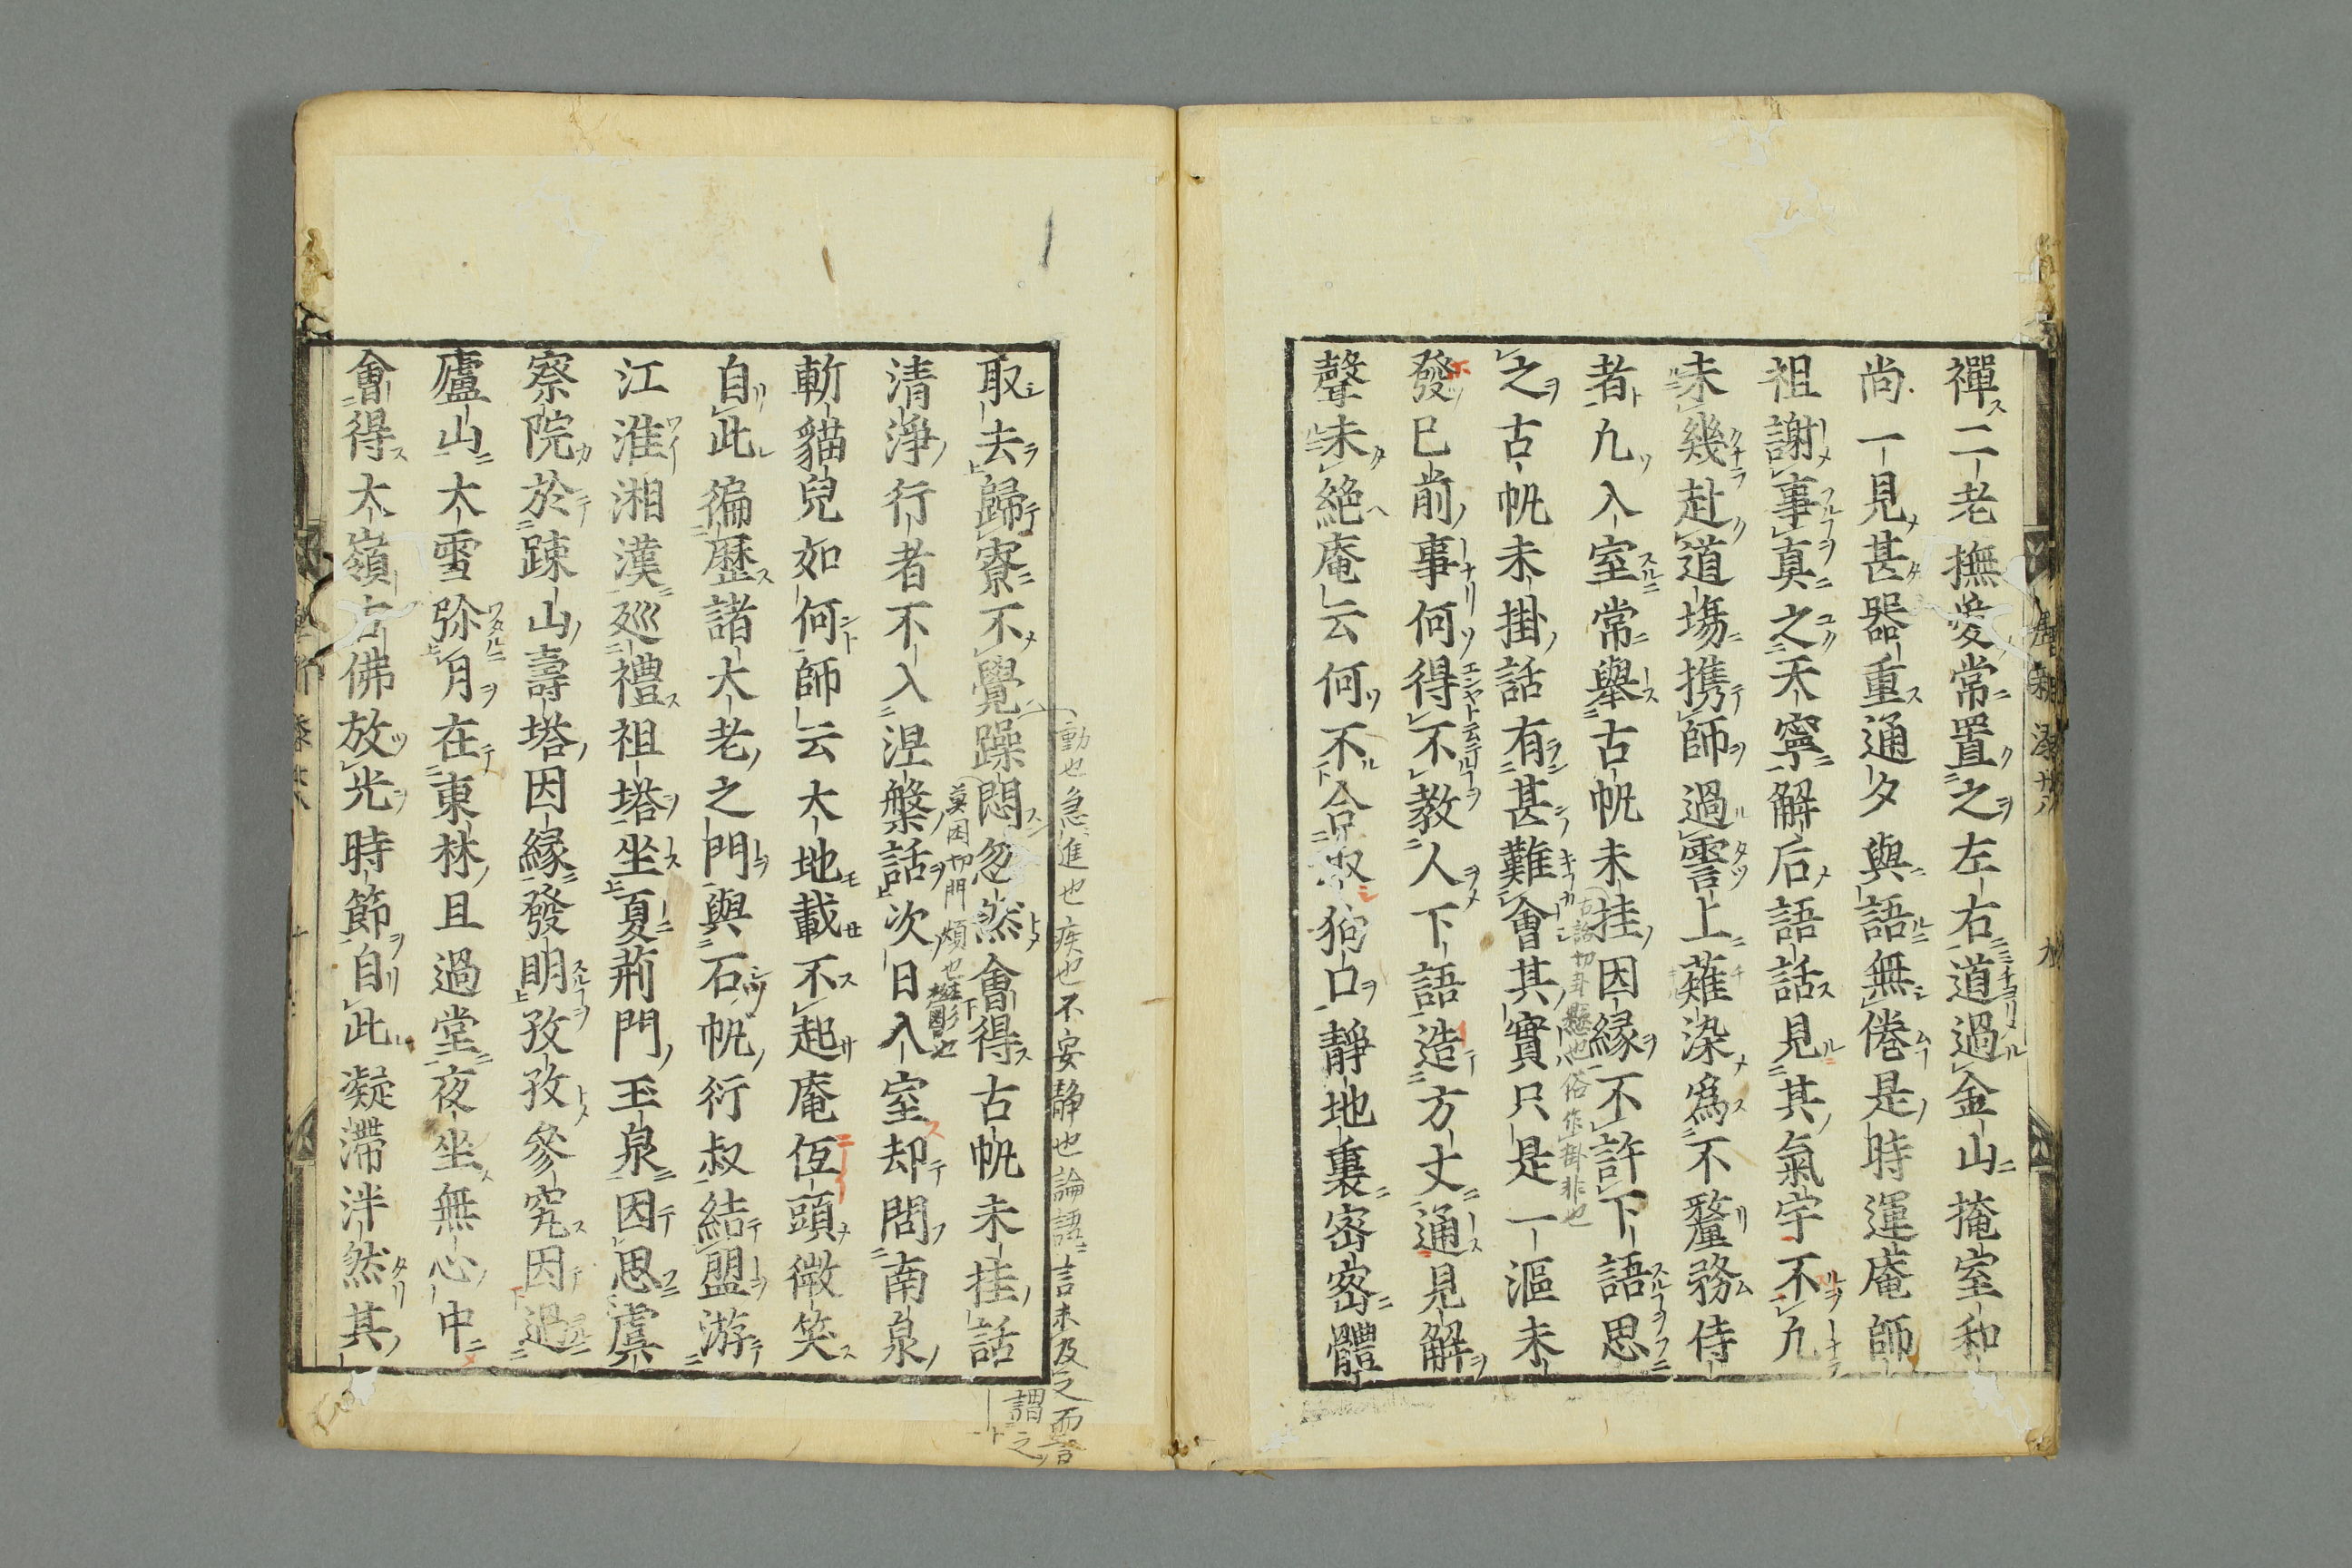 禪二老撫愛常置之左右道過金山掩室和
尚一見甚器重通夕與語無倦是時運庵師
祖謝事真之天寧解后語話見其氣宇不凡
未幾赴道場携師過霅上薙染爲不釐務侍
者凡入室常舉古帆未挂因緣不許下語思
之古帆未掛話有甚難會其實只是一漚未
發已前事何得不教人下語造方丈通見解
聲未絶庵云何不合取狗口靜地裏密密體
取去歸寮不覺躁悶忽然會得古帆未挂話
清淨行者不入涅槃話次日入室却問南泉
斬貓兒如何師云大地載不起庵伍頭微笑
自此徧歷諸大老之門與石帆衍叔結盟游
江淮湘漢廵禮祖塔坐夏荊門玉泉因思虞
察院於踈山壽塔因緣發明孜孜參究因過
廬山大雪弥月在東林且過堂夜坐無心中
會得大嶺古佛放光時節自此凝滯泮然其
動也急進也疾也不安靜也論語言未及之而言
謂之
莫困切門煩也
懸也俗作掛非也